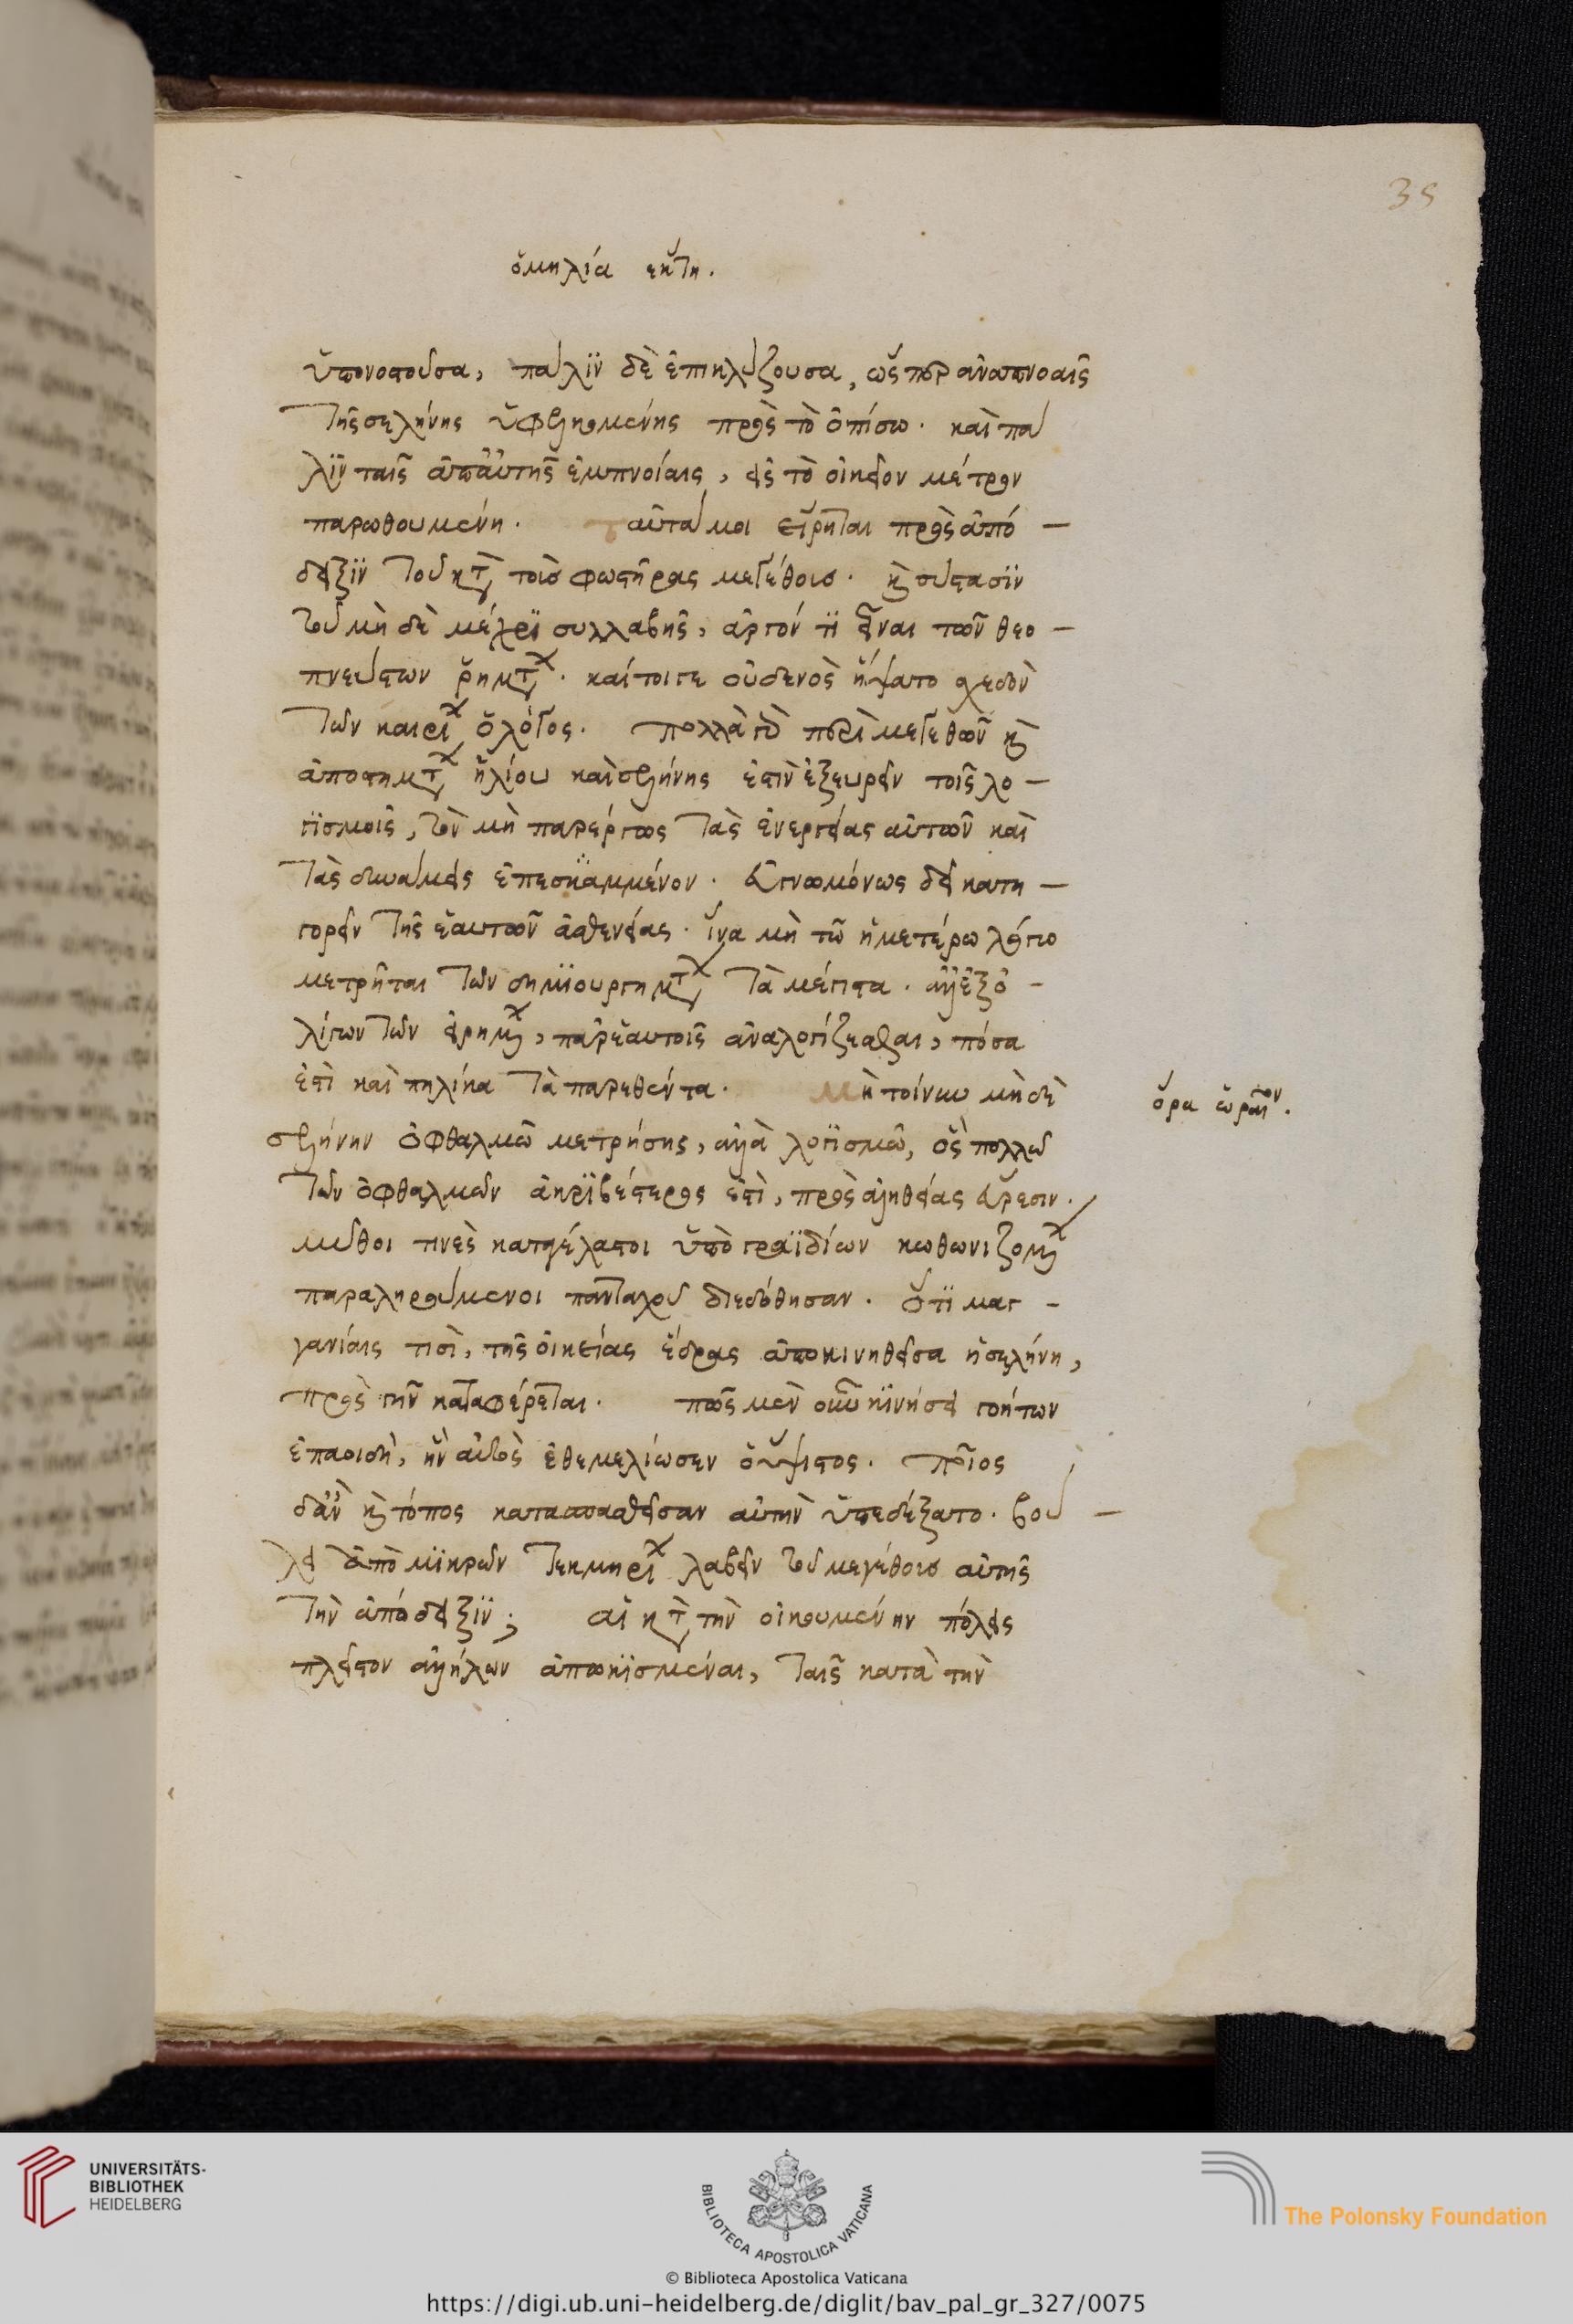 35
ὁμηλία ἕκτη.
ὑπονοστοῦσα, πάλϊν δὲ ἐπικλύζουσα, ὥσπερ ἀναπνοαῖς
τῆς σελήνης ὑφελκομένης πρὸς τὸ ὀπίσω. καὶ πά
λϊν ταῖς ἀπ αὐτῆς ἐμπνοίαις, εἰς τὸ οἰκεῖον μέτρον
παρωθουμένη. αὐτά μοι εἴρηται πρὸς ἀπό –
δειξϊν τοῦ κατὰ τοὺς φωστῆρας μεγέθους. καὶ σύστασϊν
τοῦ μὴ δὲ μέχρϊ συλλαβῆς, ἀργόν τϊ εἶναι τῶν θεο –
πνεύστων ῥημάτων. καίτοιγε οὐδενὸς ἥψατο σχεδὸν
τῶν καιρίων ὁ λόγος. πολλὰ γὰρ περὶ μεγεθῶν καὶ
ἀποστημάτων ἡλίου καὶ σελήνης ἐστὶν ἐξευρεῖν τοῖς λο –
γϊσμοῖς, τὸν μὴ παρέργως τὰς ἐνεργείας αὐτῶν καὶ
τὰς δυνάμεις ἐπεσκεμμένον. εὐγνωμόνως δεῖ κατη –
γορεῖν τῆς ἑαυτῶν ἀσθενείας. ἵνα μὴ τῶ ἡμετέρω λόγω
μετρῆται τῶν δημϊουργημάτων τὰ μέγιστα. ἀλλ ἐξ ὀ –
λίγων τῶν εἰρημένων, παρ ἑαυτοῖς ἀναλογίζεσθαι, πόσα
ἐστὶ καὶ πηλίκα τὰ παρεθέντα. Μὴ τοίνυν μὴ δὲ
ὅρα ὡραῖον.
σελήνην ὀφθαλμῶ μετρήσης, ἀλλὰ λογϊσμῶ, ὃς πολλῶ
τῶν ὀφθαλμῶν ἀκρϊβέστερος ἐστὶ, πρὸς ἀληθείας εὕρεσιν.
μῦθοι τινὲς καταγέλαστοι ὑπὸ γραϊδίων κωθωνιζομένων
παραληρούμενοι πανταχοῦ διεδόθησαν. ὅτϊ μαγ –
γανίαις τισὶ, τῆς οἰκείας ἕδρας ἀποκινηθεῖσα ἡ σελήνη,
πρὸς γῆν καταφέρεται. πῶς μὲν οὖν κϊνήσει γοήτων
ἐπαοιδὴ, ἣν αὐτὸς ἐθεμελίωσεν ὁ ὕψιστος. ποῖος
δ ἂν καὶ τόπος κατασπασθεῖσαν αὐτὴν ὑπεδέξατο. βού –
λει ἀπὸ μϊκρῶν τεκμηρίων λαβεῖν τοῦ μεγέθους αὐτῆς
τὴν ἀπόδειξϊν; αἱ κατὰ τὴν οἰκουμένην πόλεις
πλεῖστον ἀλλήλων ἀπωκϊσμέναι, ταῖς κατὰ τὴν
UNIVERSITÄTS-
BIBLIOTHEK
HEIDELBERG
BIBLIOTECA APOSTOLICA VATICANA
The Polonsky Foundation
© Biblioteca Apostolica Vaticana
https://digi.ub.uni-heidelberg.de/diglit/bav_pal_gr_327/0075